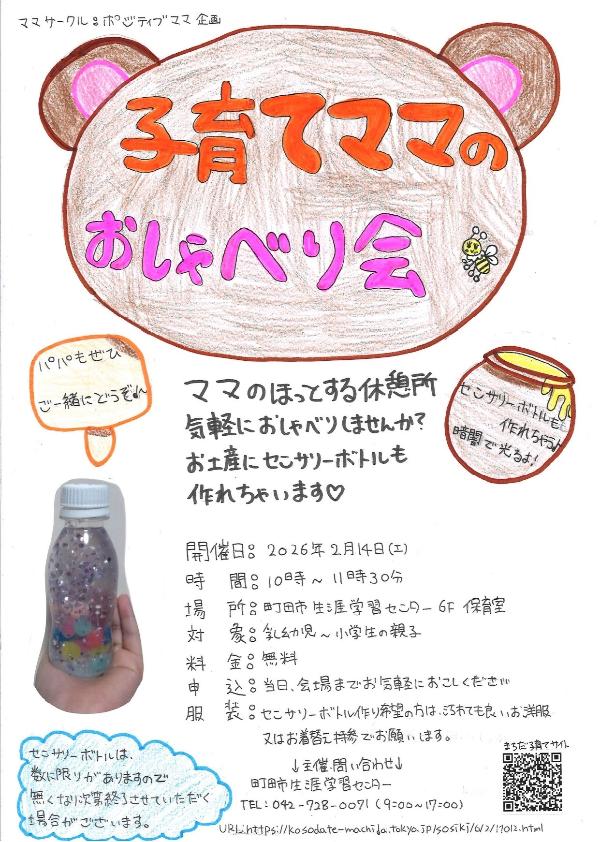 ママサークル:ポジティブママ 企画
子育てママの
おしゃべり会
パパもぜひ
ご一緒にどうぞ♪
ママのほっとする休憩所
気軽におしゃべりしませんか?
お土産にセンサリーボトルも
作れちゃいます♡
センサリーボトルも
作れちゃう♪
暗闇で光るよ!
開催日:2026年2月14日(土)
時 間:10時~11時30分
場 所:町田市生涯学習センター 6F 保育室
対 象:乳幼児~小学生の親子
料 金:無料
申 込:当日、会場までお気軽におこしください
服 装:センサリーボトル作り希望の方は、汚れても良いお洋服
又はお着替え持参でお願いします。
センサリーボトルは、
数に限りがありますので
無くなり次第終了させていただく
場合がございます。
↓主催・問い合わせ↓
町田市生涯学習センター
TEL:042-728-0071(9:00~17:00)
まちだ子育てサイト
URL:https://kosodate-machida.tokyo.jp/sosiki/6/2/17012.html